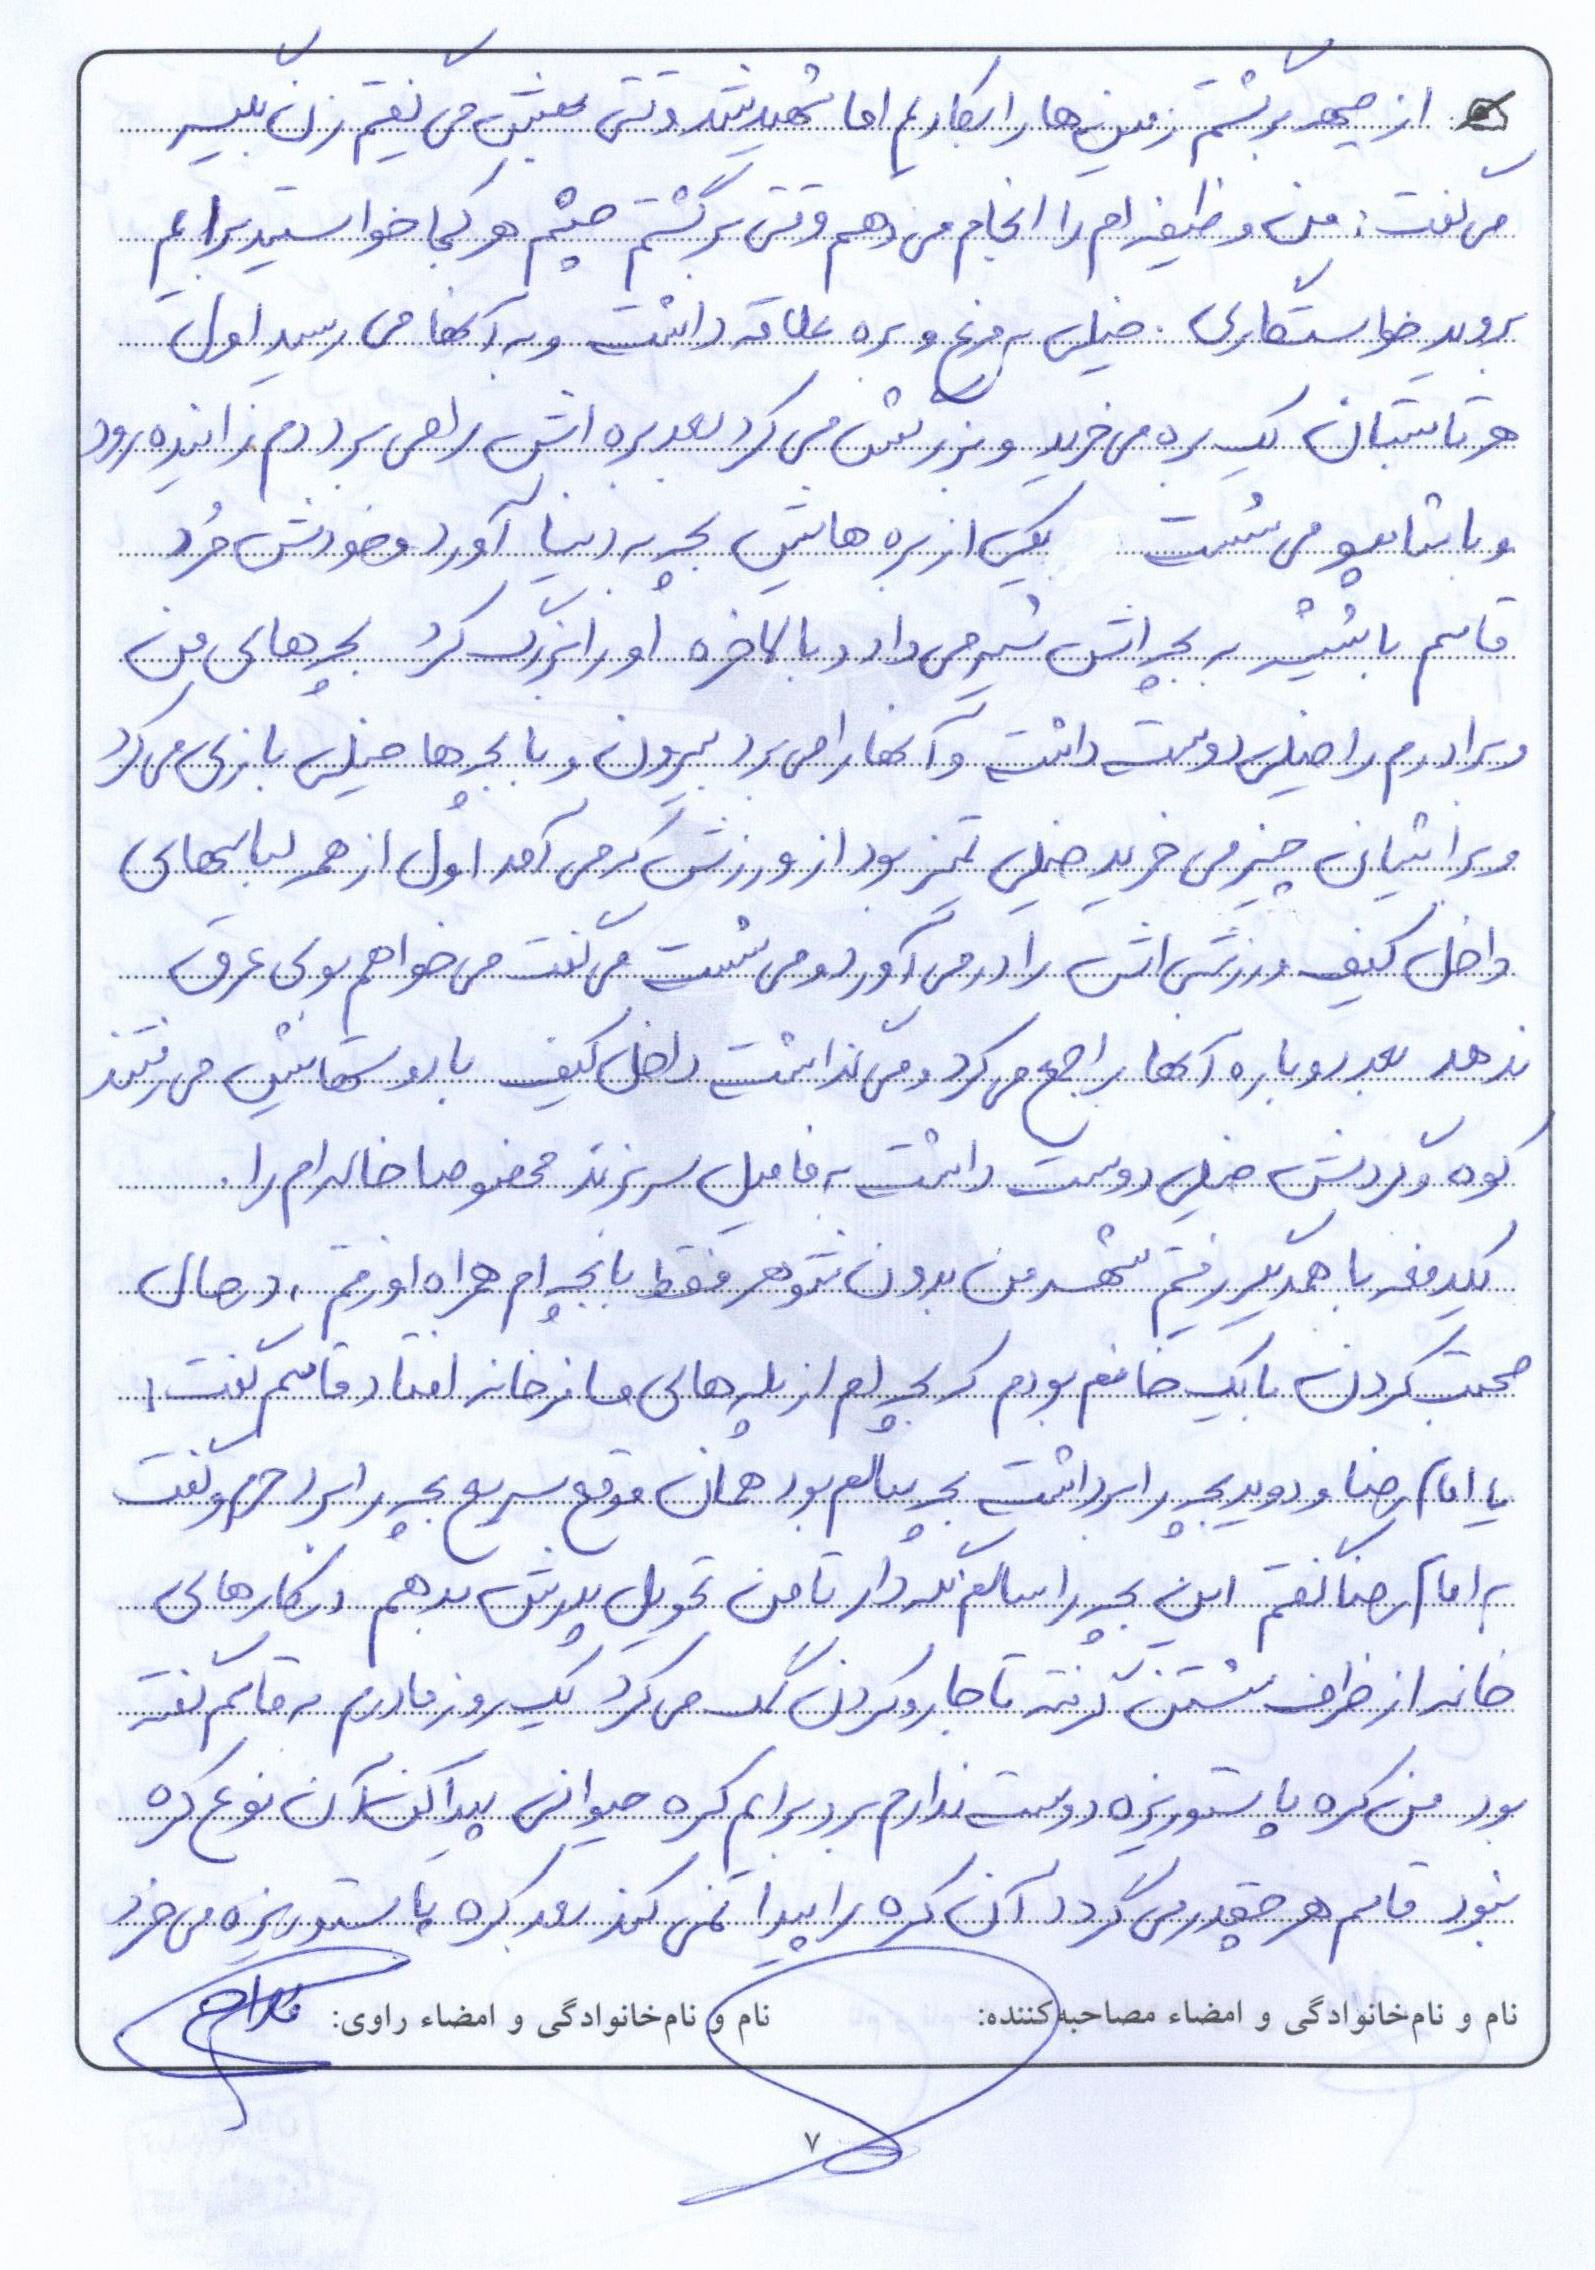 از جبهه برگشتم زمین ها را بکاریم اما شهید شد وقتی بهش می گفتیم زن بگیر
می گفت: من وظیفه ام را انجام می دهم وقتی برگشتم چشم هر کجا خواستید برایم
بروید خواستگاری. خیلی به مرغ و بره علاقه داشت و به آنها می رسید اول
هر تابستان یک بره می خرید و بزرگش می کرد بعد بره اش را می برد دم زاینده رود
و با شامپو می شست یکی از بره هایش بچه به دنیا آورد و خودش مُرد
قاسم با شیشه به بچه اش شیر می داد و بالاخره او را بزرگ کرد بچه های من
و برادرم را خیلی دوست داشت و آنها را می برد بیرون و با بچه ها خیلی بازی می کرد
و برایشان چیز می خرید خیلی تمیز بود از ورزش که می آمد اول از همه لباسهای
داخل کیف ورزشی اش را در می آورد و می شست می گفت می خواهم بوی عرق
ندهد بعد دوباره آنها را جمع می کرد و می گذاشت داخل کیف با دوستهایش می رفتند
کوه و گردش خیلی دوست داشت به فامیل سر بزند مخصوصا خاله ام را.
یکدفعه با همدیگر رفتیم مشهد من بدون شوهر فقط با بچه ام همراه او رفتم، در حال
صحبت کردن با یک خانم بودم که بچه ام از پله های مسافرخانه افتاد قاسم گفت:
یا امام رضا و دوید بچه را برداشت بچه سالم بود همان موقع سریع بچه را برد حرم و گفت
به امام رضا گفتم این بچه را سالم نگه دار تا من تحویل پدرش بدهم در کارهای
خانه از ظرف شستن گرفته تا جارو کردن کمک می کرد یک روز مادرم به قاسم گفته
بود من کره پاستوریزه دوست ندارم برو برایم کره حیوانی پیدا کن آن نوع کره
نبود قاسم هر چقدر می گردد آن کره را پیدا نمی کند بعد کره پاستوریزه می خرد
نام و نام‌خانوادگی و امضاء مصاحبه‌کننده: نام و نام‌خانوادگی و امضاء راوی:
۷